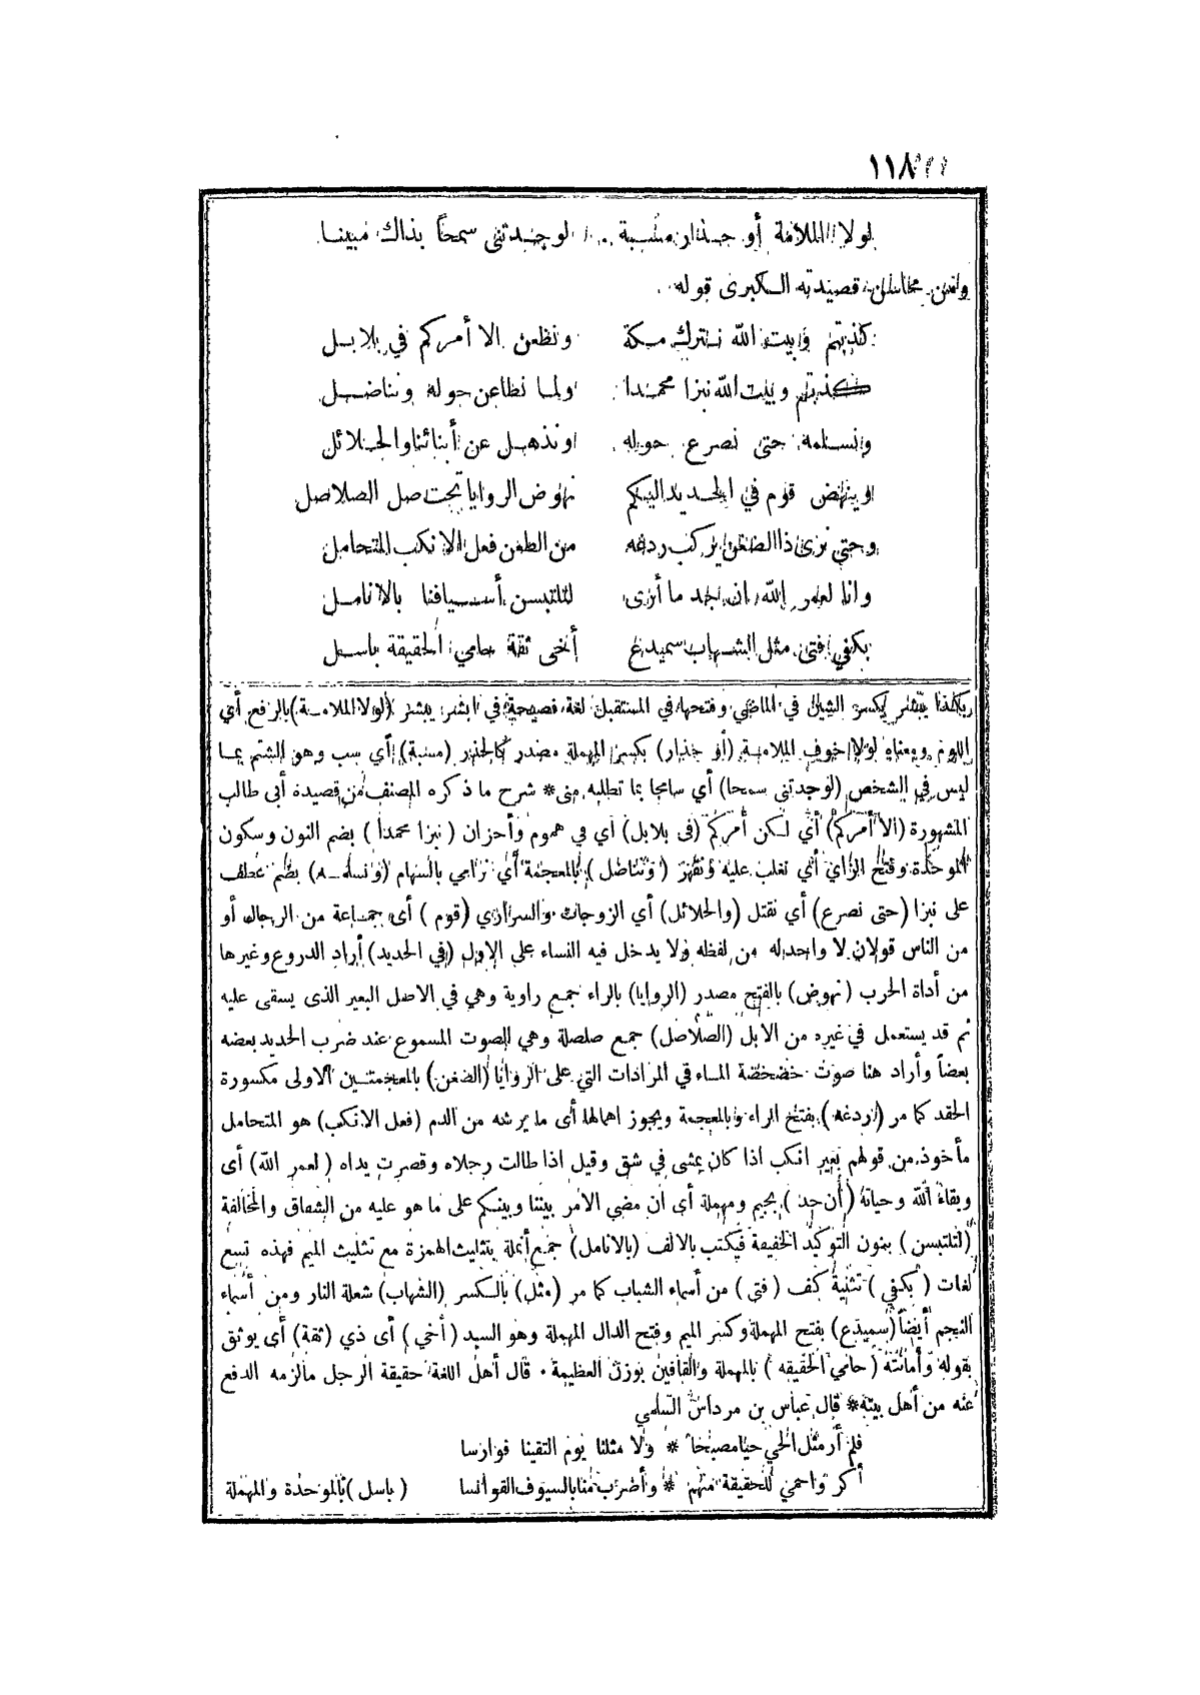 ١١٨
لولا الملامة أو حذار مسبة لوجدتني سمحاً بذاك مبينا
ومن محاسن قصيدته الكبرى قوله
كذبتم وبيت الله نترك مكة ونظعن الا أمركم في بلابل
كذبتم وبيت الله نبزا محمدا ولما نطاعن حوله ونناضل
ونسلمه حتى نصرع حوله ونذهل عن أبنائنا والحلائل
وينهض قوم في الحديد اليكم نهوض الروايا تحت صل الصلاصل
وحتى نرى ذا الضغن يركب ردعه من الطعن فعل الانكب المتحامل
وانا لعمر الله ان جد ما أرى لتلتبسن أسيافنا بالانامل
بكفي فتى مثل الشهاب سميدع أخى ثقة حامي الحقيقة باسل
يبشر بكسر الشين في الماضي وفتحها في المستقبل لغة فصيحة في ابشر يبشر (لولا الملامة) بالرفع أي
اللوم ومعناه لولا خوف الملامة (أو حذار) بكسر المهملة مصدر كالحذر (مسبة) أي سب وهو الشتم بما
ليس في الشخص (لوجدتني سمحا) أي سامحا بما تطلبه منى* شرح ما ذكره المصنف من قصيدة أبى طالب
المشهورة (الا أمركم) أي لكن أمركم (فى بلابل) أي في هموم وأحزان (نبزا محمدا) بضم النون وسكون
الموحدة وفتح الزاي أي نغلب عليه ونقهر (ونناضل) بالمعجمة أي نرامي بالسهام (ونسلمه) بضم عطف
على نبزا (حتى نصرع) أي نقتل (والحلائل) أي الزوجات والسراري (قوم) أى جماعة من الرجال أو
من الناس قولان لا واحد له من لفظه ولا يدخل فيه النساء على الاول (في الحديد) أراد الدروع وغيرها
من أداة الحرب (نهوض) بالفتح مصدر (الروايا) بالراء جمع راوية وهي في الاصل البعير الذى يسقى عليه
ثم قد يستعمل في غيره من الابل (الصلاصل) جمع صلصلة وهي الصوت المسموع عند ضرب الحديد بعضه
بعضاً وأراد هنا صوت خضخضة الماء في المزادات التي على الروايا (الضغن) بالمعجمتين الاولى مكسورة
الحقد كما مر (ردعه) بفتح الراء وبالمعجمة ويجوز اهمالها أى ما يرشه من الدم (فعل الانكب) هو المتحامل
مأخوذ من قولهم بعير انكب اذا كان يمشى في شق وقيل اذا طالت رجلاه وقصرت يداه (لعمر الله) أى
وبقاء الله وحياته (أن جد) بجيم ومهملة أي ان مضي الامر بيننا وبينكم على ما هو عليه من الشقاق والمخالفة
(لتلتبسن) بنون التوكيد الخفيفة فيكتب بالالف (بالانامل) جمع أنملة بتثليث الهمزة مع تثليث الميم فهذه تسع
لغات (بكفي) تثنية كف (فتى) من أسماء الشباب كما مر (مثل) بالكسر (الشهاب) شعلة النار ومن أسماء
النجم أيضاً (سميدع) بفتح المهملة وكسر الميم وفتح الدال المهملة وهو السيد (أخي) أى ذي (ثقة) أى يوثق
بقوله وأمانته (حامي الحقيقه) بالمهملة والقافين بوزن العظيمة. قال أهل اللغة حقيقة الرجل مالزمه الدفع
عنه من أهل بيته* قال عباس بن مرداس السلمي
فلم أر مثل الحي حيا مصبحا * ولا مثلنا يوم التقينا فوارسا
أكر واحمي للحقيقة منهم * وأضرب منا بالسيوف القوانسا (باسل) بالموحدة والمهملة